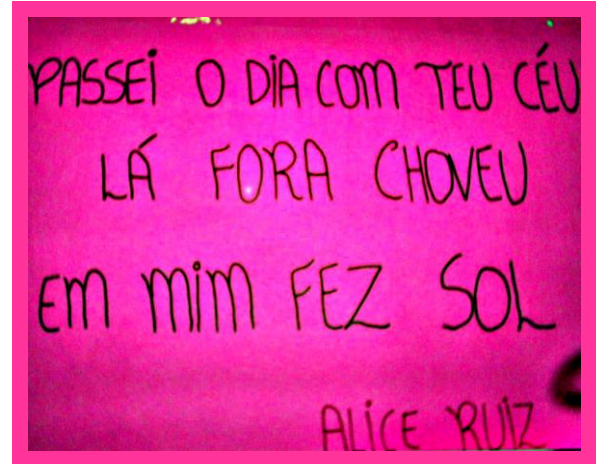 PASSEI O DIA COM TEU CÉU
LÁ FORA CHOVEU
EM MIM FEZ SOL
ALICE RUIZ